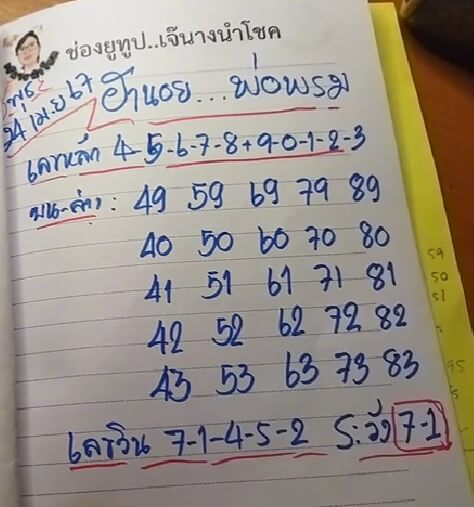 ช่องยูทูป..เจ๊นางนำโชค
พุธ
24 เม.ย 67
ฮานอย... พ่อพรม
เลขหลัก 4-5-6-7-8+9-0-1-2-3
บน-ล่าง : 49 59 69 79 89
40 50 60 70 80
41 51 61 71 81
42 52 62 72 82
43 53 63 73 83
เลขวิน 7-1-4-5-2 ระวัง 7-1
59
50
51
95